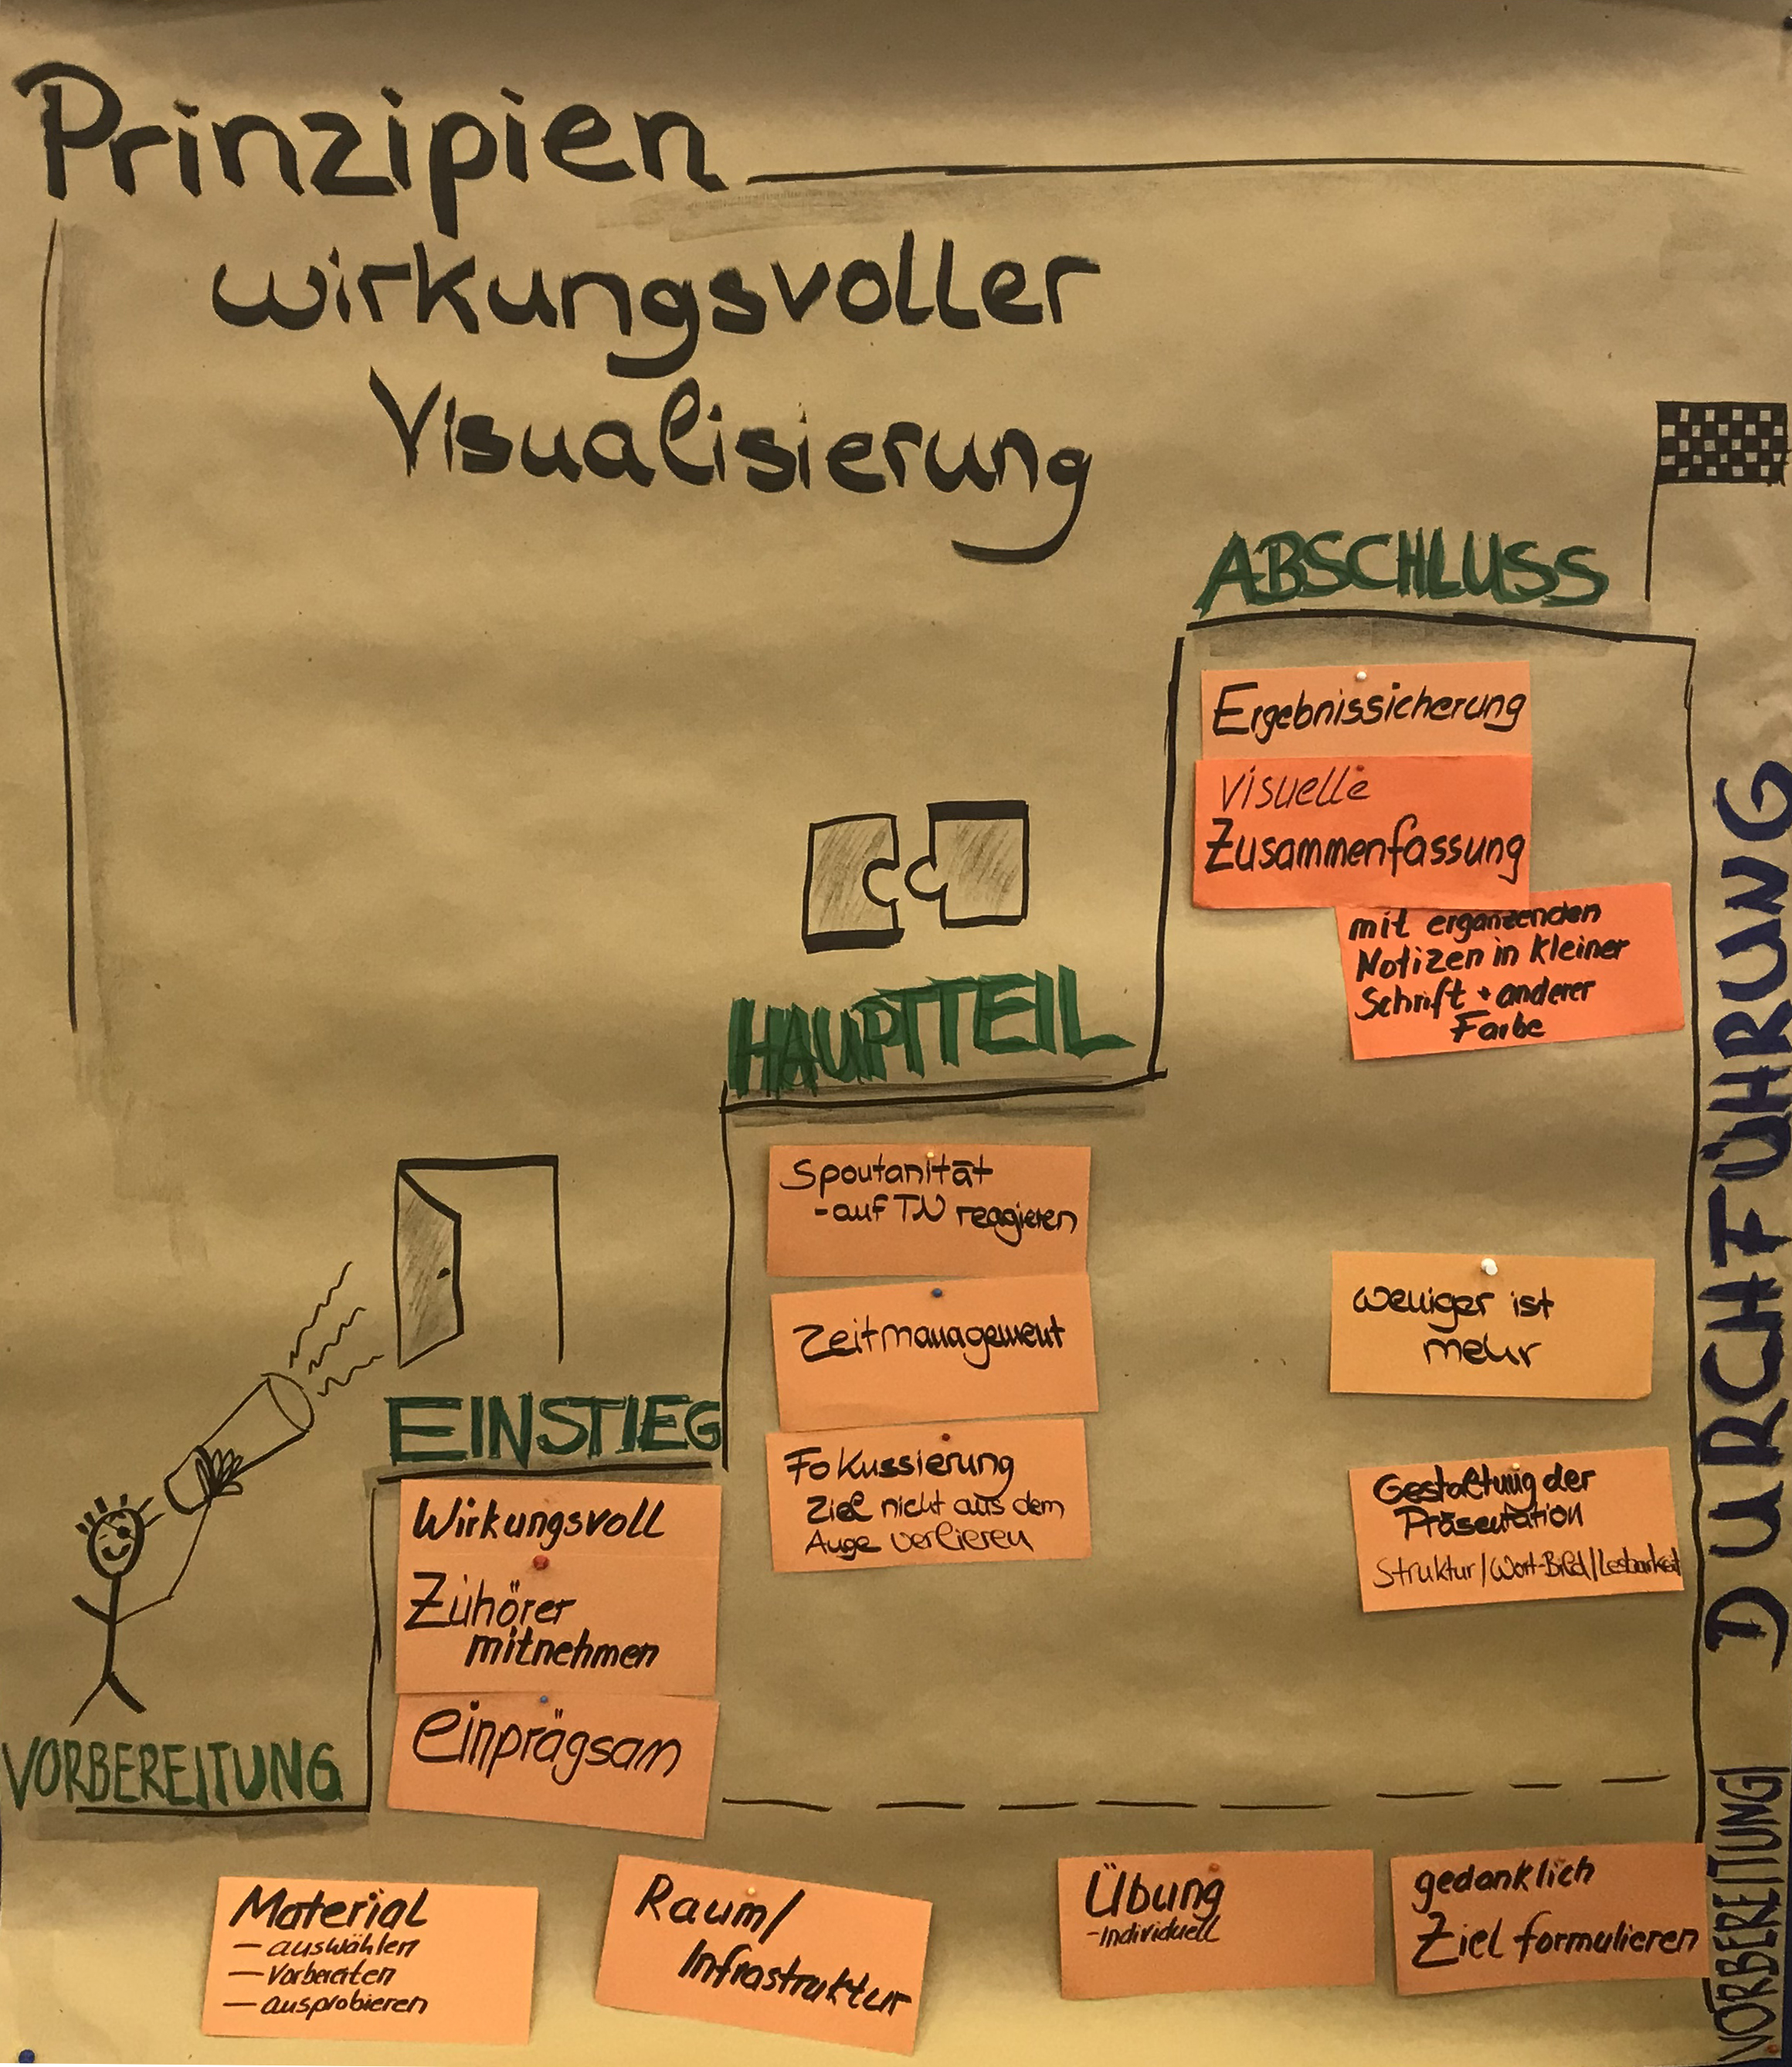 Prinzipien
wirkungsvoller
Visualisierung
ABSCHLUSS
Ergebnissicherung
visuelle
Zusammenfassung
mit ergänzenden
Notizen in kleiner
Schrift + anderer
Farbe
HAUPTTEIL
Spontanität
- auf TN reagieren
Zeitmanagement
Fokussierung
Ziel nicht aus dem
Auge verlieren
weniger ist
mehr
Gestaltung der
Präsentation
Struktur/Wort-Bild/Lesbarkeit
EINSTIEG
Wirkungsvoll
Zuhörer
mitnehmen
einprägsam
VORBEREITUNG
Material
— auswählen
— Vorbereiten
— ausprobieren
Raum/
Infrastruktur
Übung
- Individuell
gedanklich
Ziel formulieren
DURCHFÜHRUNG
VORBEREITUNG